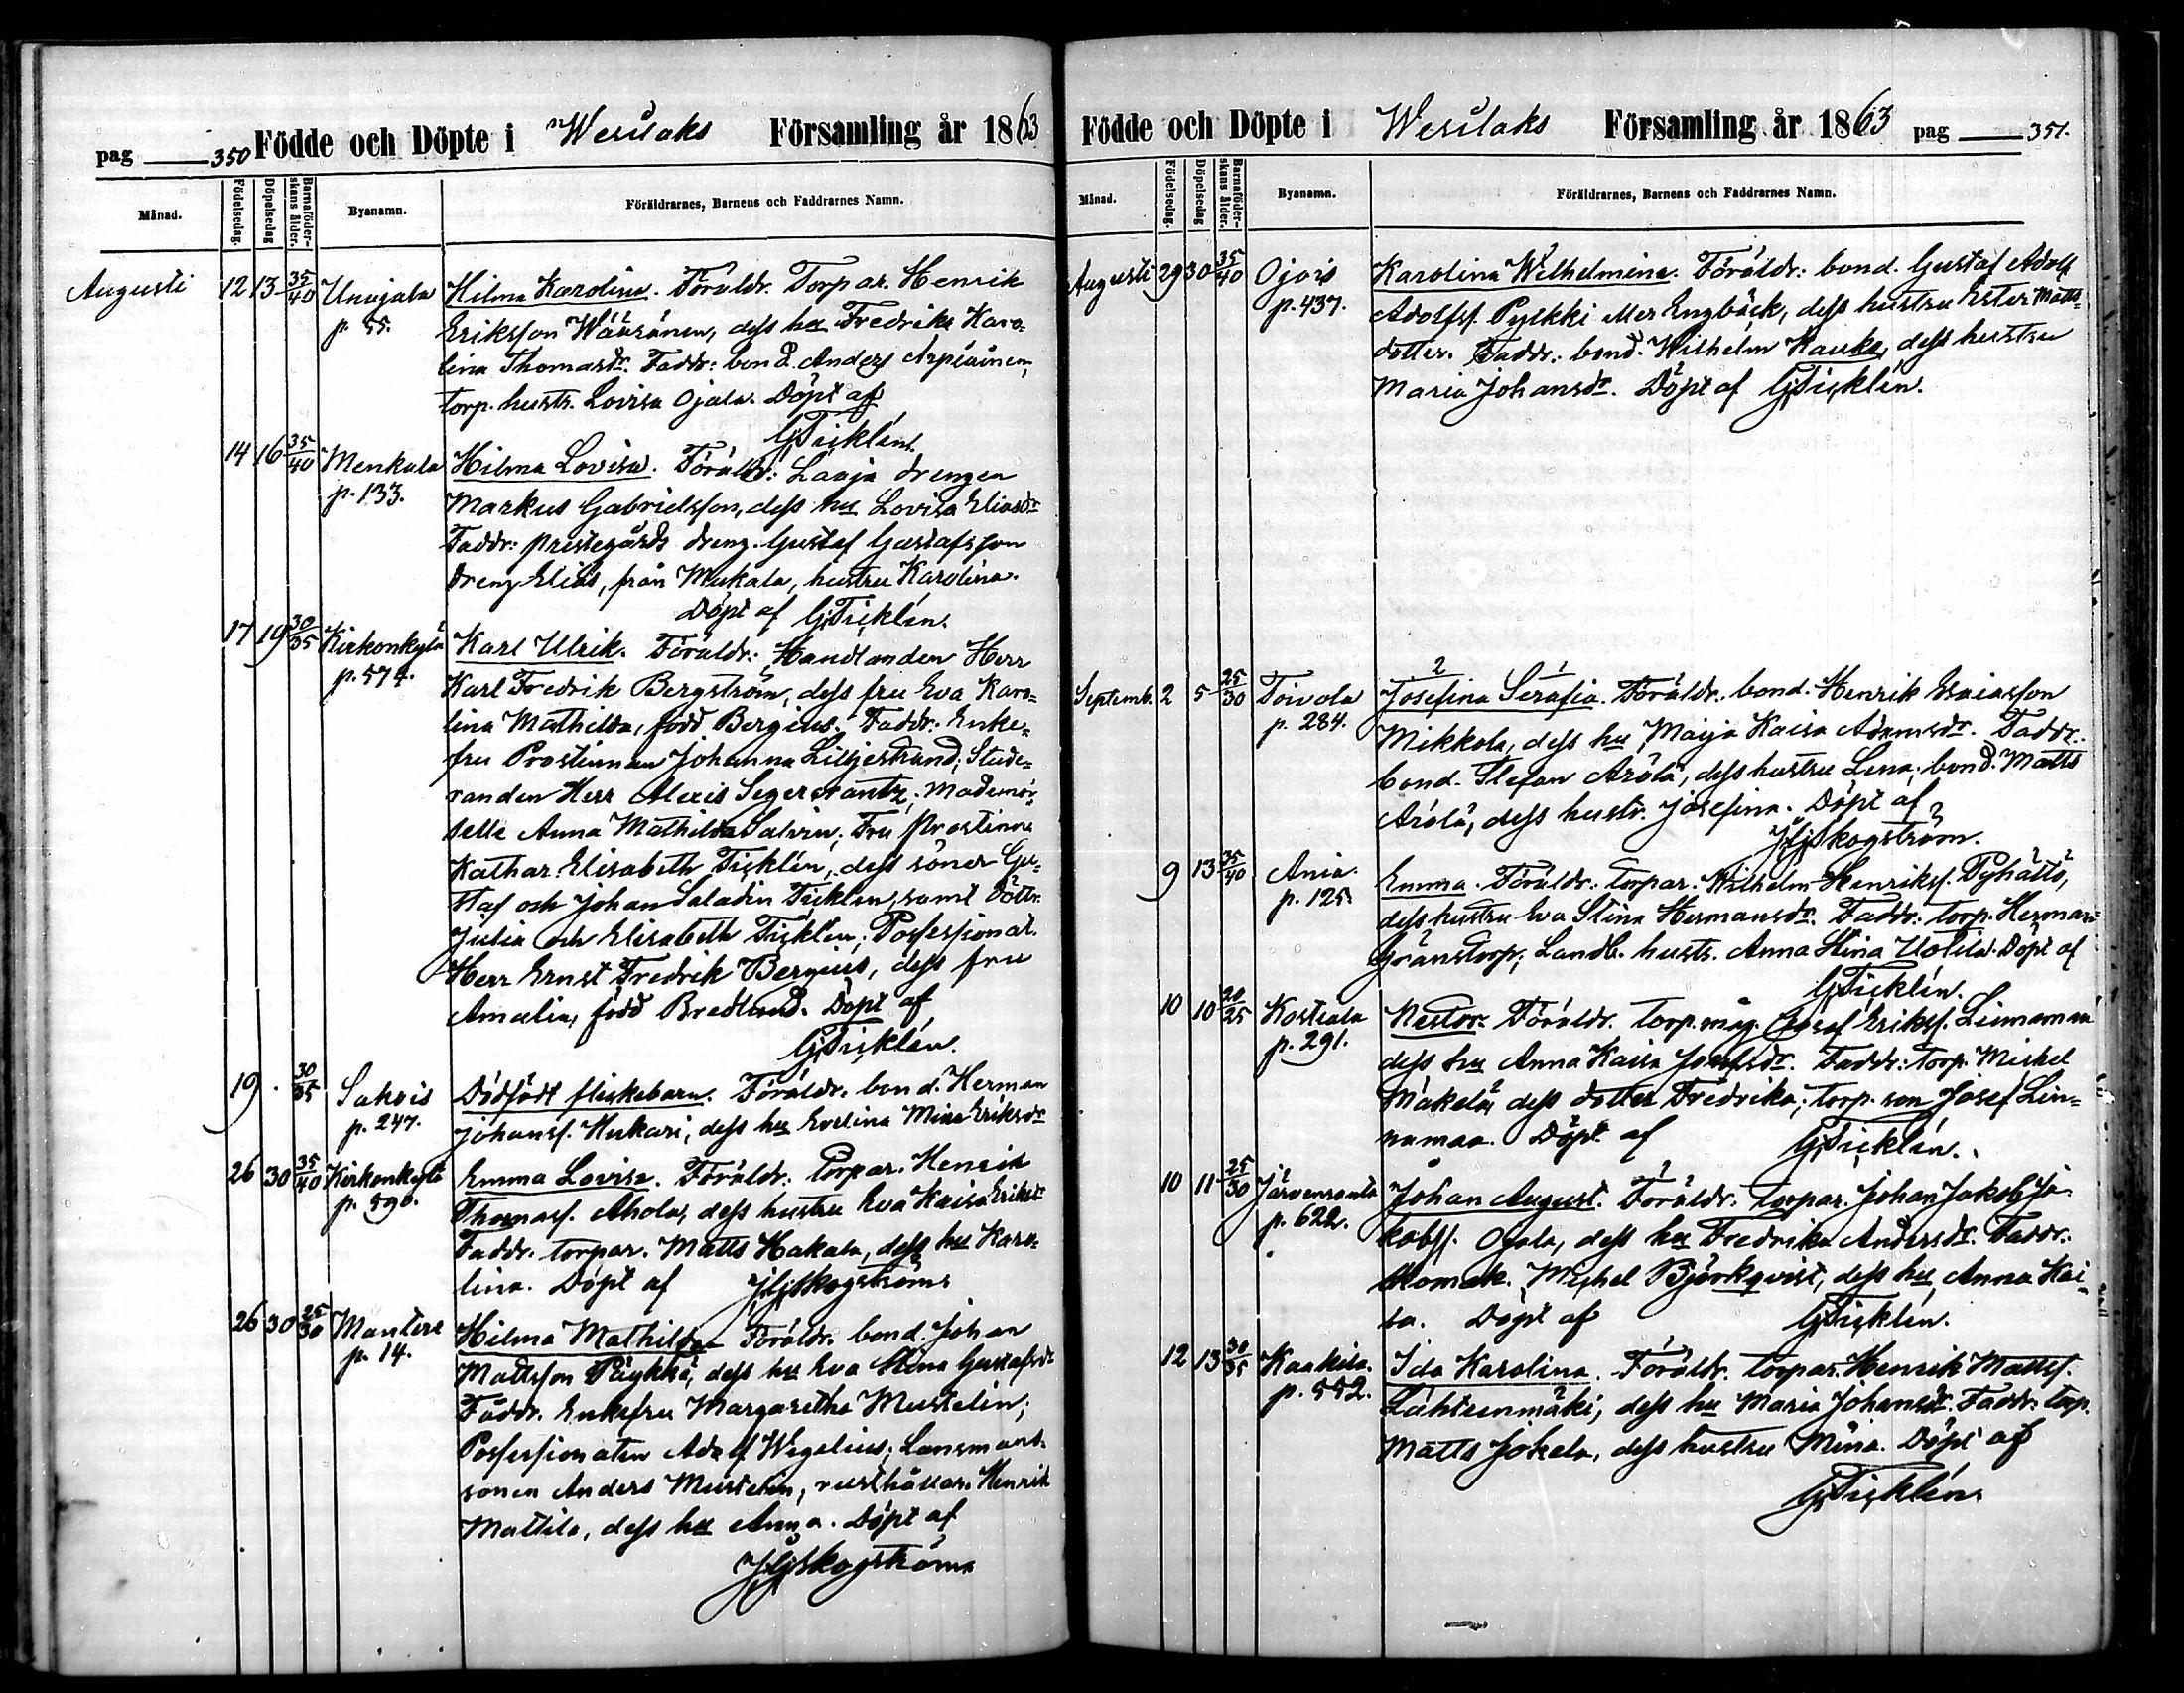 pag 350 Födde och Döpte i Wesilaks Församling år 1863
Månad. Födelsedag. Döpelsedag Barnaföderskans ålder. Byanamn. Föräldrarnes, Barnens och Faddrarnes Namn.
Augusti 12 13 35/40 Unajala Hilma Karolina. Föräldr. Torpar. Henrik
p. 55. Eriksson Wääränen, dess hu Fredrika Karo-
lina Thomasdr. Faddr: bond. Anders Arpiainen,
torp. hustr. Lovisa Ojala. Döpt af
G Ticklén.
14 16 35/40 Menkala Hilma Lovisa. Föräldr: Laaja drengen
p. 133. Markus Gabrielsson, dess hu Lovisa Eliasdr
Faddr: prestegårds dreng. Gustaf Gustafsson
dreng Elias, från Mukala, hustru Karolina.
Döpt af G Ticklén.
17 19 30/35 Kirkonkylä Karl Ulrik. Föräldr: Handlanden Herr
p. 574. Karl Fredrik Bergström, dess fru Eva Karo-
lina Mathilda, född Bergius. Faddr. Enke-
fru Prostinnan Johanna Liljestrand; Stude-
randen Herr Alexis Segercrantz; Mademoi-
selle Anna Mathilda Salvin; Fru Prostinna
Kathar. Elisabeth Ticklén, dess söner Gu-
staf och Johan Saladin Ticklén, samt döttr.
Julia och Elisabeth Ticklén; Possessionat.
Herr Ernst Fredrik Bergius, dess fru
Amalia, född Bredlund. Döpt af
G Ticklén.
19 . 30/35 Sakois Dödfödt flickebarn. Föräldr. bond. Herman
p. 247. Johanss. Hukari, dess hu Evelina Mina Eriksdr
26 30 35/40 Kirkonkylä Emma Lovisa. Föräldr. torpar. Henrik
p. 590. Thomass. Ahola, dess hustru Eva Kaisa Eriksdr
Faddr. torpar. Matts Hakala, dess hu Karo-
lina. Döpt af J G Skogström
26 30 25/30 Mantere Hilma Mathilda. Föräldr. bond. Johan
p. 14. Mattsson Päykkä, dess hu Eva Stina Gustafsdr
Faddr. Enkefru Margaretha Mustelin;
Possessionaten Adolf Wegelius; Lansmans-
sonen Anders Mustelin; rusthållar. Henrik
Mattila, dess hu Anna. Döpt af
J G Skogström
Födde och Döpte i Wesilaks Församling år 1863 pag 351.
Månad. Födelsedag. Döpelsedag Barnaföderskans ålder. Byanamn. Föräldrarnes, Barnens och Faddrarnes Namn.
Augusti 29 30 35/40 Ojois Karolina Wilhelmina. Föräldr: bond. Gustaf Adolf
p. 437. Adolfss. Pylkki eller Engbäck, dess hustru Ester Matts-
dotter. Faddr.: bond. Wilhelm Kauke, dess hustru
Maria Johansdr. Döpt af G Ticklén.
Septemb. 2 5 25/30 Toivola Josefina Serafia. Föräldr. bond. Henrik Esaiasson
p. 284. Mikkola, dess hu Maija Kaisa Adamsdr. Faddr.
bond. Stefan Arölä, dess hustru Lena; bond. Matts
Arölä, dess hustr. Josefina. Döpt af
J G Skogström.
9 13 35/40 Ania. Emma. Föräldr. torpar. Wilhelm Henrikss. Pyhältö,
p. 125. dess hustru Eva Stina Hermansdr. Faddr. torp. Herman
Gränstorp; Landb. hustr. Anna Stina Uotila. Döpt af
G Ticklén.
10 10 20/25 Kostiala Nestor. Föräldr. torp. måg. Josef Erikss. Linnamaa
p. 291. dess hu Anna Kaisa Josefsdr. Faddr: torp. Michel
Mäkelä, dess dotter Fredrika; torp. son Josef Lin-
namaa. Döpt af G Ticklén.
10 11 25/30 Järvenranta Johan August. Föräldr. torpar. Johan Jakob Ja-
p. 622. kobss. Ojala, dess hu Fredrika Andersdr. Faddr.
skomak. Michel Björkqvist, dess hu Anna Kai-
sa. Döpt af G Ticklén.
12 13 30/35 Kaakila. Ida Karolina. Föräldr. torpar. Henrik Mattss.
p. 552. Lähteenmäki, dess hu Maria Johansdr. Faddr: torp.
Matts Jokela, dess hustru Mina. Döpt af
G Ticklén